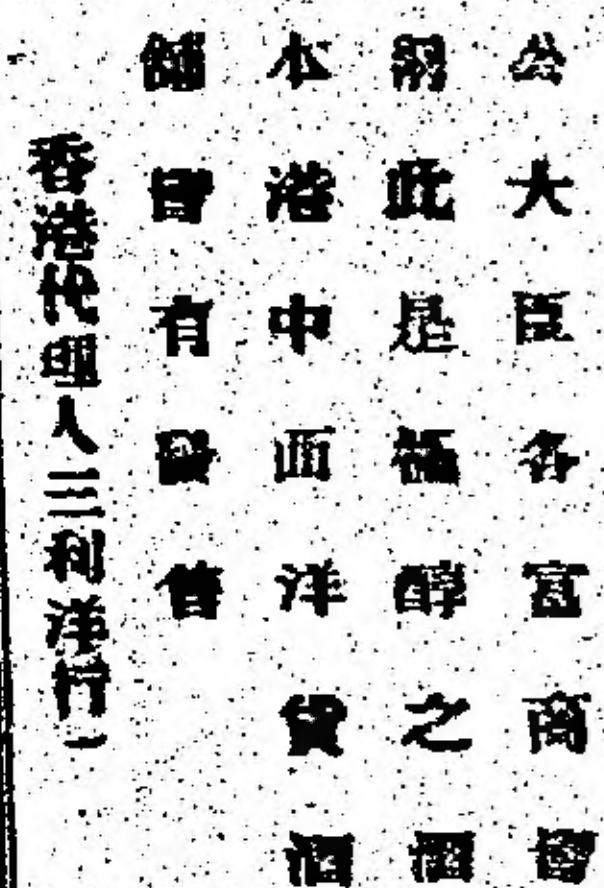 公大臣各富商
此是極醇之酒
本港中西洋貨酒
舖皆有發售
香港代理人三利洋行